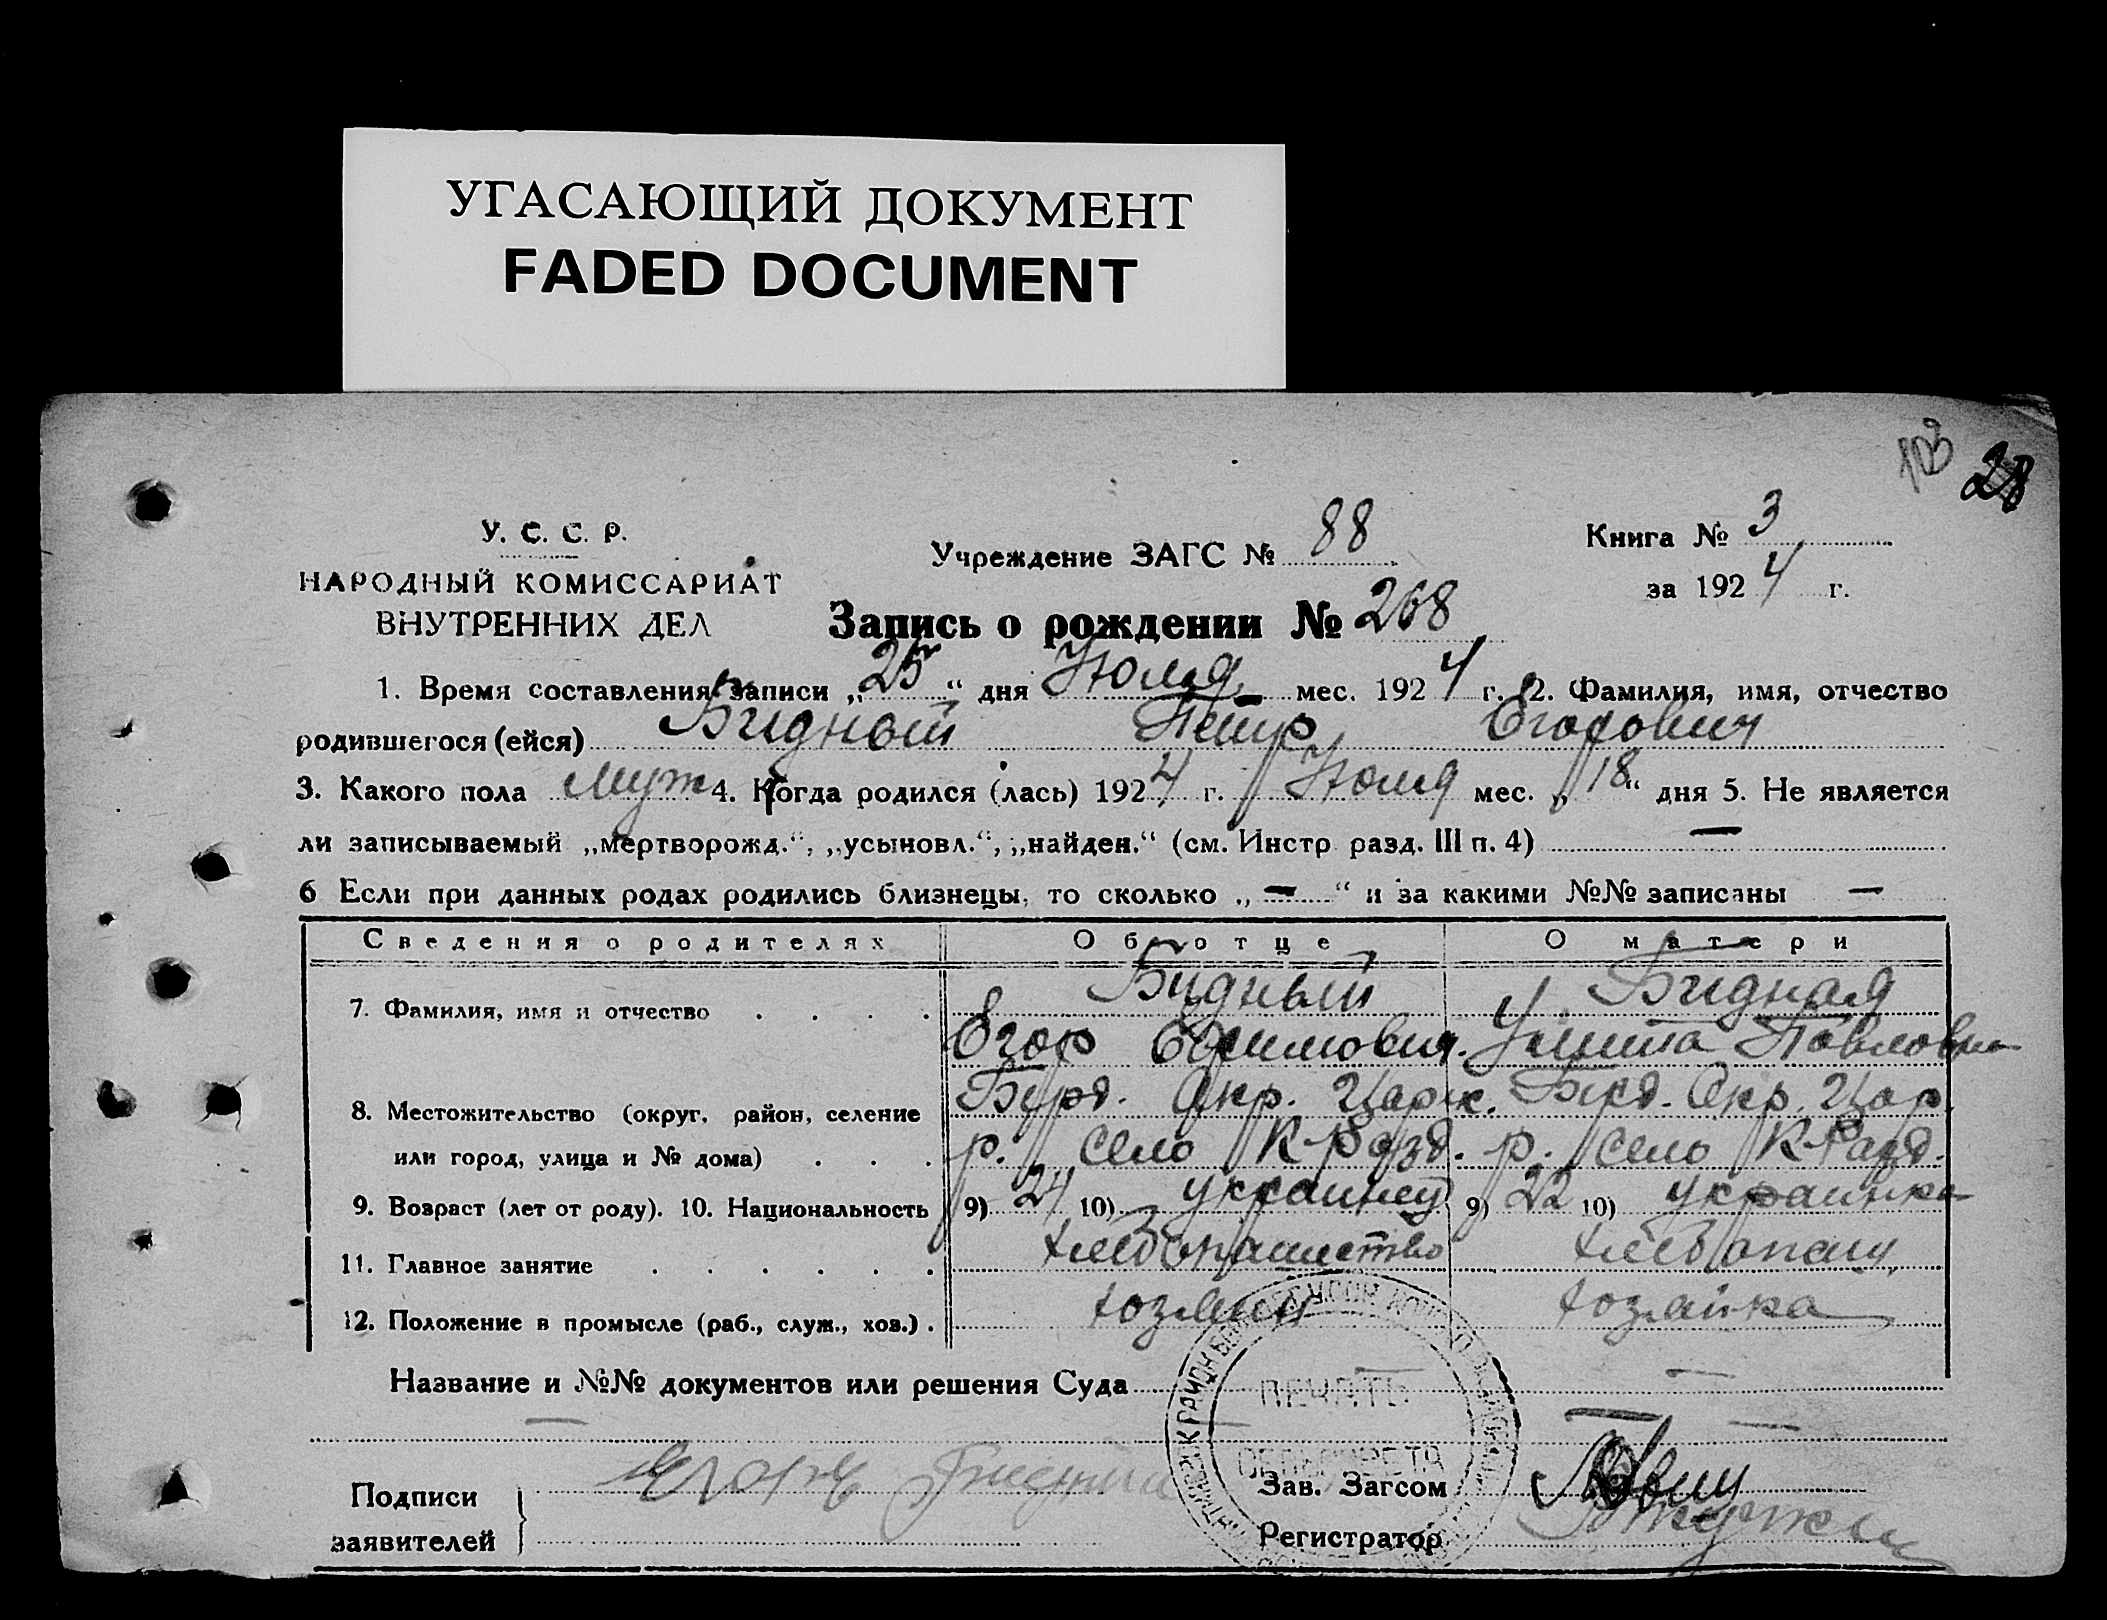 УГАСАЮЩИЙ ДОКУМЕНТ
FADED DOCUMENT
103 28
У. С. С. Р.
НАРОДНЫЙ КОМИССАРИАТ
ВНУТРЕННИХ ДЕЛ
Учреждение ЗАГС № 88
Книга № 3
за 1924 г.
Запись о рождении № 268
1. Время составления записи „25“ дня Июля мес. 1924 г. 2. Фамилия, имя, отчество
родившегося (ейся) Бидный Петр Егорович
3. Какого пола муж 4. Когда родился (лась) 1924 г. Июля мес. „18“ дня 5. Не является
ли записываемый „мертворожд.“, „усыновл.“, „найден.“ (см. Инстр разд. III п. 4) —
6 Если при данных родах родились близнецы, то сколько „—“ и за какими №№ записаны —
Сведения о родителях Об отце О матери
7. Фамилия, имя и отчество Бидный Бидная
Егор Ефимович. Улита Павловна
8. Местожительство (округ, район, селение Берд. Окр. Царек. Берд. Окр. Цар.
или город, улица и № дома) р. село К-Разд. р. село К-Разд.
9. Возраст (лет от роду). 10. Национальность 9) 24 10) украинец 9) 22 10) украинка
11. Главное занятие хлебопашество хлебопаш.
12. Положение в промысле (раб., служ., хоз.) хозяин хозяйка
Название и №№ документов или решения Суда —
ПЕЧАТЬ
СЕЛЬСОВЕТА
Подписи
заявителей
Егоръ Бидный
Зав. Загсом
Регистратор